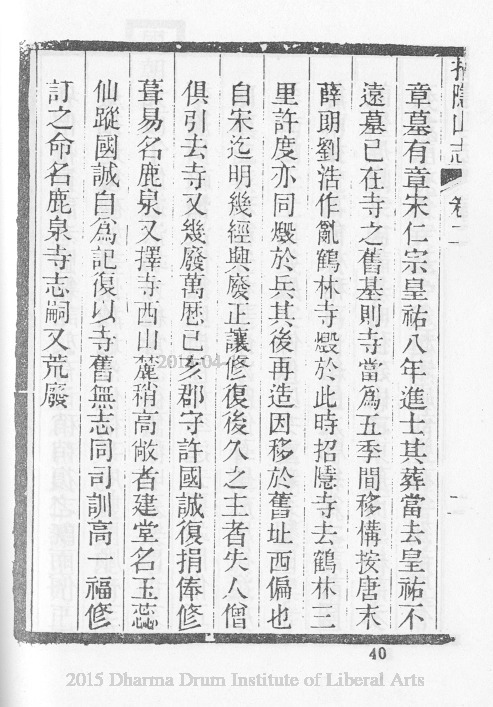 招隱山志 卷二
章墓有章宋仁宗皇祐八年進士其葬當去皇祐不
遠墓已在寺之舊基則寺當為五季間移構按唐末
薛朗劉浩作亂鶴林寺燬於此時招隱寺去鶴林三
里許度亦同燬於兵其後再造因移於舊址西偏也
自宋迄明幾經興廢正讓修復後久之主者失人僧
俱引去寺又幾廢萬歷己亥郡守許國誠復捐俸修
葺易名鹿泉又擇寺西山麓稍高敞者建堂名玉蕊
仙蹤國誠自為記復以寺舊無志同司訓高一福修
訂之命名鹿泉寺志嗣又荒廢
40
2015 Dharma Drum Institute of Liberal Arts